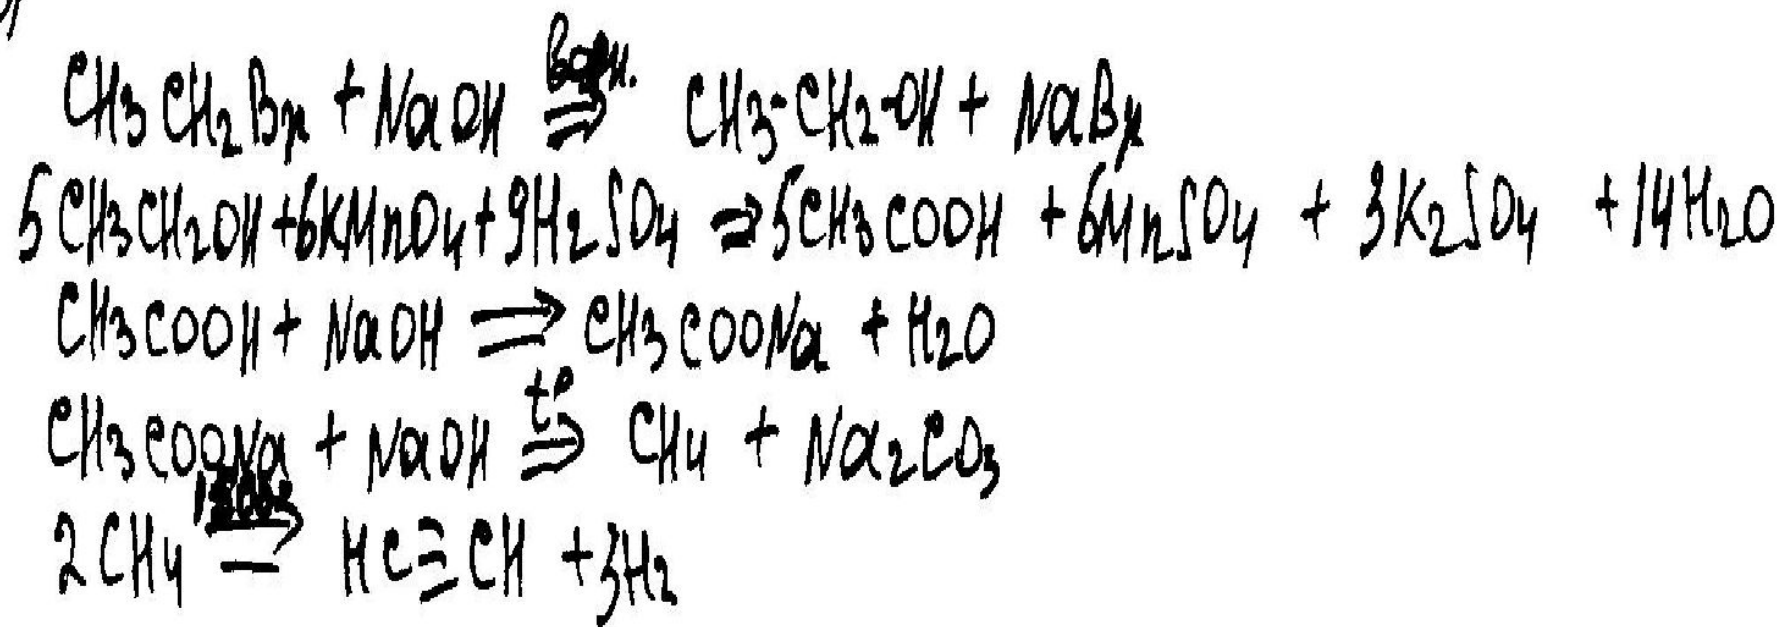 водн.
CH3CH2Br + NaOH ⇒ CH3-CH2-OH + NaBr
5CH3CH2OH+6KMnO4+9H2SO4 ⇒ 5CH3COOH + 6MnSO4 + 3K2SO4 + 14H2O
CH3COOH + NaOH ⇒ CH3COONa + H2O
t°
CH3COONa + NaOH ⇒ CH4 + Na2CO3
2CH4 ⇒ HC≡CH + 3H2